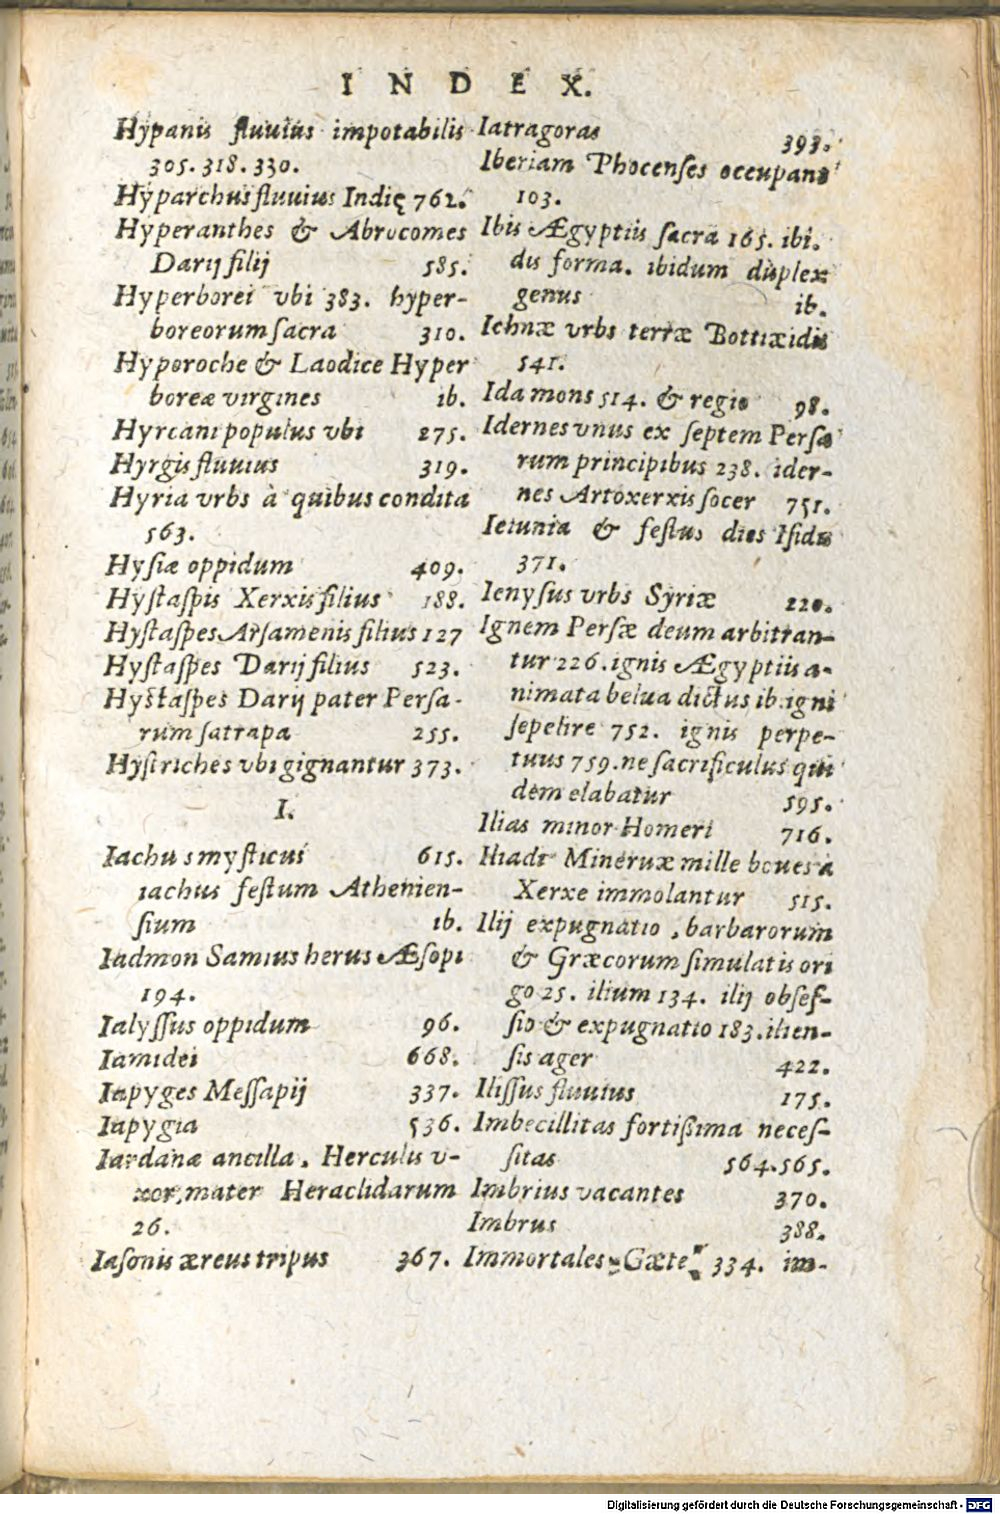 INDEX.
Hypanis fluuius impotabilis
305.318.330.
Hyparchus fluuius Indię 762.
Hyperanthes & Abrocomes
Darij filij 585.
Hyperborei vbi 383. hyper-
boreorum sacra 310.
Hyperoche & Laodice Hyper
boreæ virgines ib.
Hyrcani populus vbi 275.
Hyrgis fluuius 319.
Hyria vrbs à quibus condita
563.
Hysiæ oppidum 409.
Hystaspis Xerxis filius 188.
Hystaspes Arsamenis filius 127
Hystaspes Darij filius 523.
Hystaspes Darij pater Persa-
rum satrapa 255.
Hystriches vbi gignantur 373.
I.
Iachus mysticus 615.
iachus festum Athenien-
sium ib.
Iadmon Samius herus Æsopi
194.
Ialyssus oppidum 96.
Iamidei 668.
Iapyges Messapij 337.
Iapygia 536.
Iardanæ ancilla, Herculis v-
xor, mater Heraclidarum
26.
Iasonis æreus tripus 367.
Iatragoras 393.
Iberiam Phocenses occupant
103.
Ibis Ægyptiis sacra 165. ibi.
dis forma. ibidum duplex
genus ib.
Ichnæ vrbs terræ Bottiæidis
541.
Ida mons 514. & regio 98.
Idernes vnus ex septem Persa
rum principibus 238. ider-
nes Artoxerxis socer 751.
Ieiunia & festus dies Isidis
371.
Ienysus vrbs Syriæ 220.
Ignem Persæ deum arbitran-
tur 226. ignis Ægyptiis a-
nimata belua dictus ib. igni
sepelire 752. ignis perpe-
tuus 759. ne sacrificulus qui
dem elabatur 595.
Ilias minor Homeri 716.
Iliadi Mineruæ mille boues à
Xerxe immolantur 515.
Ilij expugnatio, barbarorum
& Græcorum simulatis ori
go 25. ilium 134. ilij obses-
sio & expugnatio 183. ilien-
sis ager 422.
Ilissus fluuius 175.
Imbecillitas fortißima neces-
sitas 564.565.
Imbrius vacantes 370.
Imbrus 388.
Immortales Gæte 334. im-
Digitalisierung gefördert durch die Deutsche Forschungsgemeinschaft - DFG